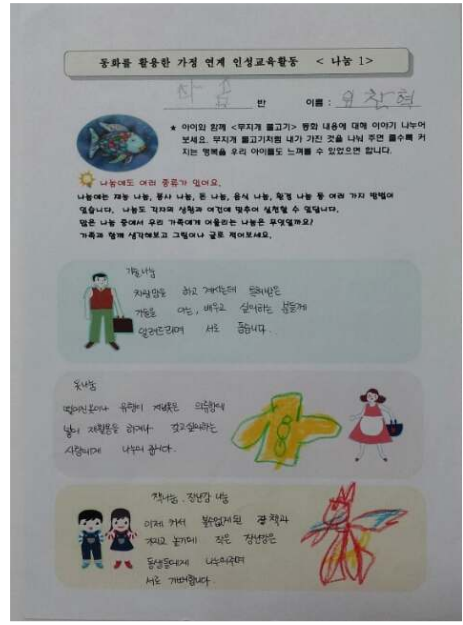 동화를 활용한 가정 연계 인성교육활동 < 나눔 1>
반 이름 : 찬혁
★ 아이와 함께 <무지개 물고기> 동화 내용에 대해 이야기 나누어
보세요. 무지개 물고기처럼 내가 가진 것을 나눠 주면 줄수록 커
지는 행복을 우리 아이들도 느껴볼 수 있었으면 합니다.
나눔에도 여러 종류가 있어요.
나눔에는 재능 나눔, 봉사 나눔, 돈 나눔, 음식 나눔, 환경 나눔 등 여러 가지 방법이
있습니다. 나눔도 각자의 생활과 여건에 맞추어 실천할 수 있답니다.
많은 나눔 중에서 우리 가족에게 어울리는 나눔은 무엇일까요?
가족과 함께 생각해보고 그림이나 글로 적어보세요.
기술나눔
하고 계시는데
기술을 배우고 싶어하는 분들께
알려드리며 서로 돕습니다.
옷나눔
유행이 지난옷은 의류함에
넣어 재활용을 하거나 갖고싶어하는
사람에게 나누어 줍니다.
책나눔, 장난감 나눔
이제 커서 볼수없게된 책과
가지고 놀기에 작은 장난감은
동생들에게 나눠주며
서로 기뻐합니다.